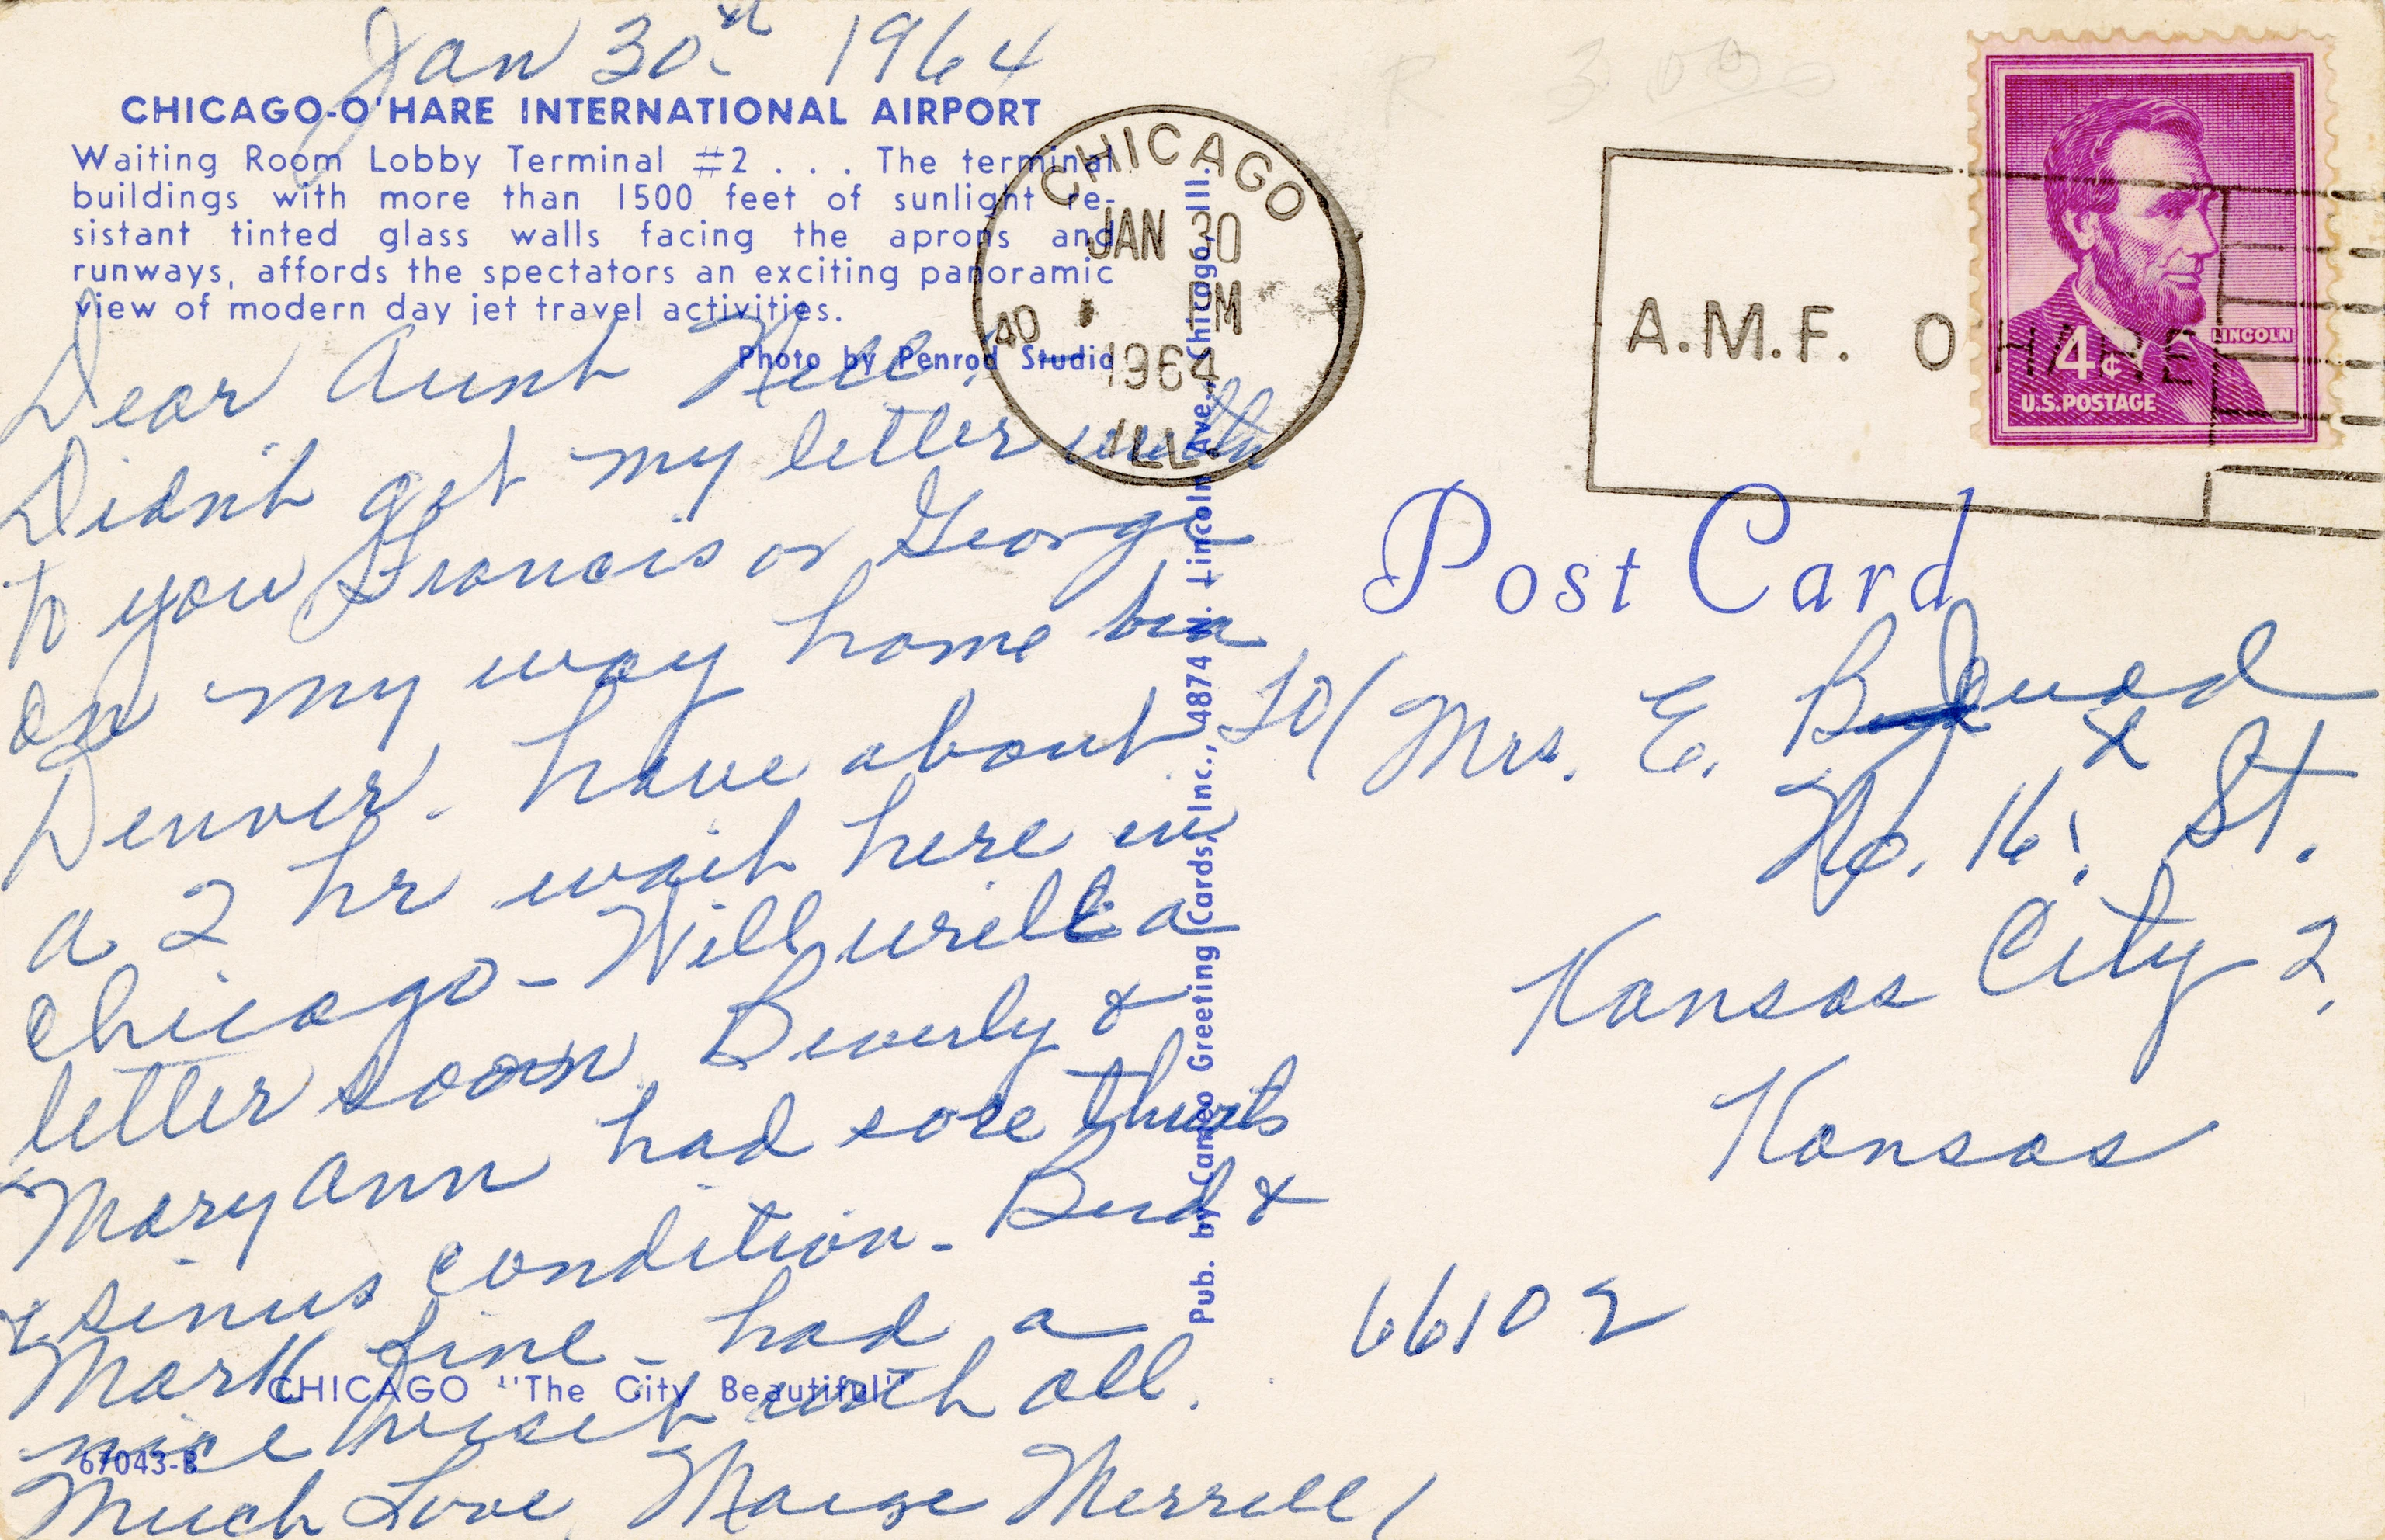 Jan 30st 1964
CHICAGO-O'HARE INTERNATIONAL AIRPORT
Waiting Room Lobby Terminal #2 . . . The terminal
buildings with more than 1500 feet of sunlight re-
sistant tinted glass walls facing the aprons and
runways, affords the spectators an exciting panoramic
view of modern day jet travel activities.
Photo by Penrod Studio
Dear Aunt Nell.
Didn't get my letter
to you Francis or George
on my way home
Denver. have about
a 2 hr wait here in
Chicago - Will write a
letter soon. Beverly &
Mary Ann had sore throats
& sinus condition - Bud &
Mark fine - had a
nice visit with all.
Much Love, Merrell
CHICAGO "The City Beautiful"
67043-B
Pub. by Cameo Greeting Cards, Inc., 4874 N. Lincoln Ave., Chicago, Ill.
CHICAGO
JAN 30
PM
1964
ILL.
40
A.M.F. O HARE
LINCOLN
4¢
U.S.POSTAGE
R 3.00
Post Card
To/ Mrs. E.
No. 16. St.
Kansas City 2,
Kansas
66102